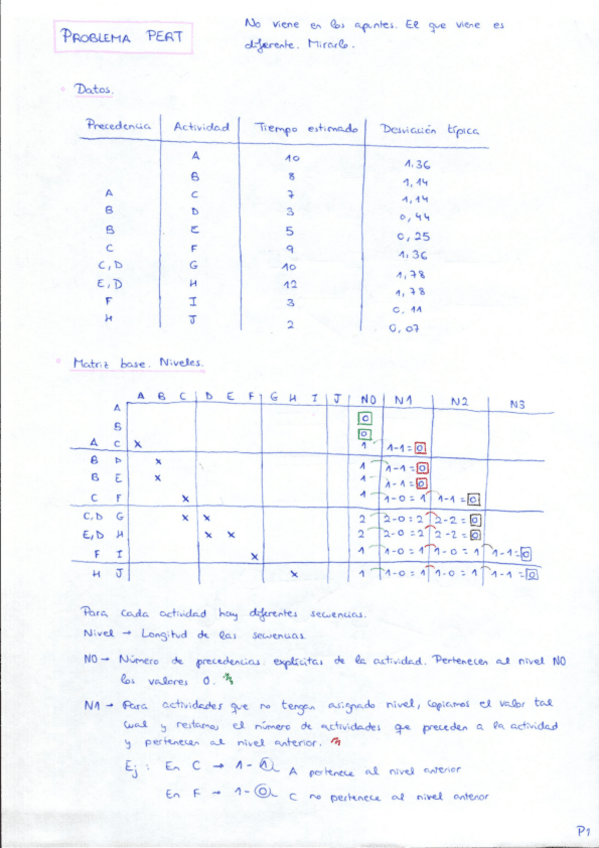 PROBLEMA PERT
No viene en los apuntes. El que viene es
diferente. Mirarlo.
Datos.
Precedencia Actividad Tiempo estimado Desviación típica
A 10 1,36
B 8 1,14
A C 7 1,14
B D 3 0,44
B E 5 0,25
C F 9 1,36
C,D G 10 1,78
E,D H 12 1,78
F I 3 0,11
H J 2 0,07
Matriz base. Niveles.
A B C D E F G H I J N0 N1 N2 N3
A 0
B 0
A C x 1 1-1=0
B D x 1 1-1=0
B E x 1 1-1=0
C F x 1 1-0=1 1-1=0
C,D G x x 2 2-0=2 2-2=0
E,D H x x 2 2-0=2 2-2=0
F I x 1 1-0=1 1-0=1 1-1=0
H J x 1 1-0=1 1-0=1 1-1=0
Para cada actividad hay diferentes secuencias.
Nivel → Longitud de las secuencias
N0 → Número de precedencias explícitas de la actividad. Pertenecen al nivel N0
los valores 0.
N1 → Para actividades que no tengan asignado nivel, copiamos el valor tal
cual y restamos el número de actividades que preceden a la actividad
y pertenecen al nivel anterior.
Ej: En C → 1-1 A pertenece al nivel anterior
En F → 1-0 C no pertenece al nivel anterior
P1